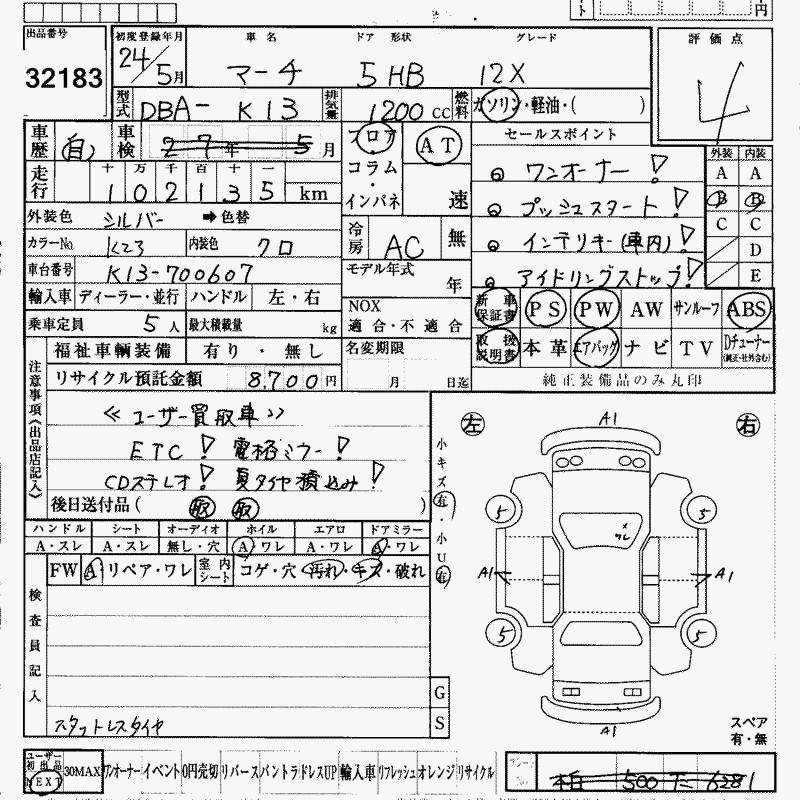 出品番号
32183
初度登録年月 車名 ドア 形状 グレード
24/5月 マーチ 5HB 12X
型式 DBA- K13 排気量 1200cc 燃料 ガソリン・軽油・( )
評価点
4
車歴 自 車検 27年 5月
フロア AT
コラム・インパネ 速
走行 十 万 千 百 十 一
102135 km
セールスポイント
◎ ワンオーナー!
◎ プッシュスタート!
◎ インテリキー(車内)!
◎ アイドリングストップ!
外装 内装
A A
B B
C C
D
E
外装色 シルバー ➡色替
カラーNo. K23 内装色 クロ
冷房 AC 無
車台番号 K13-700607
モデル年式 年
輸入車 ディーラー・並行 ハンドル 左・右
NOX
適合・不適合
乗車定員 5人 最大積載量 kg
新車保証書 PS PW AW サンルーフ ABS
取扱説明書 本革 エアバッグ ナビ TV Dチューナー
(純正・社外含む)
純正装備品のみ丸印
福祉車輌装備 有り・無し 名変期限
リサイクル預託金額 8,700円 月 日迄
注意事項《出品店記入》
≪ユーザー買取車≫
ETC! 電格ミラー!
CDステレオ! 夏タイヤ積込み!
後日送付品( 取 取 )
ハンドル シート オーディオ ホイル エアロ ドアミラー
A・スレ A・スレ 無し・穴 A・ワレ A・ワレ A・ワレ
FW A・リペア・ワレ 室内シート コゲ・穴・汚れ・キズ・破れ
検査員記入
スタットレスタイヤ
小キズ有・小U有
G
S
左 A1 右
5 5
×
ワレ
A1 A1
5 5
A1
スペア
有・無
ユーザー初出品 NEXT 30MAX ワンオーナー イベント 0円売切 リバース バントラ ドレスUP 輸入車 リフレッシュ オレンジ リサイクル
柏 500 て 6281